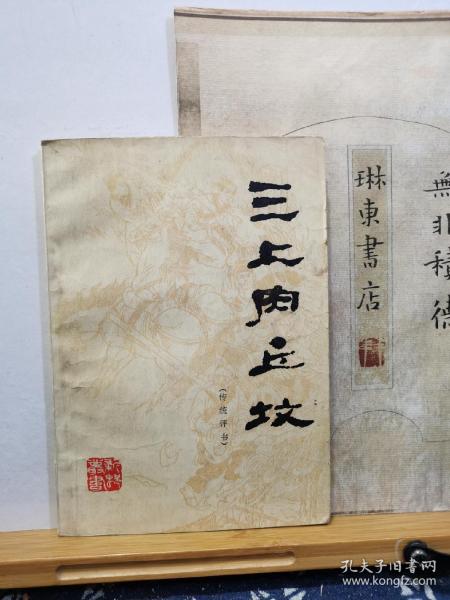 三上肉丘坟
（传统评书）
琳東書店
無非積德
孔夫子旧书网
www.kongfz.com